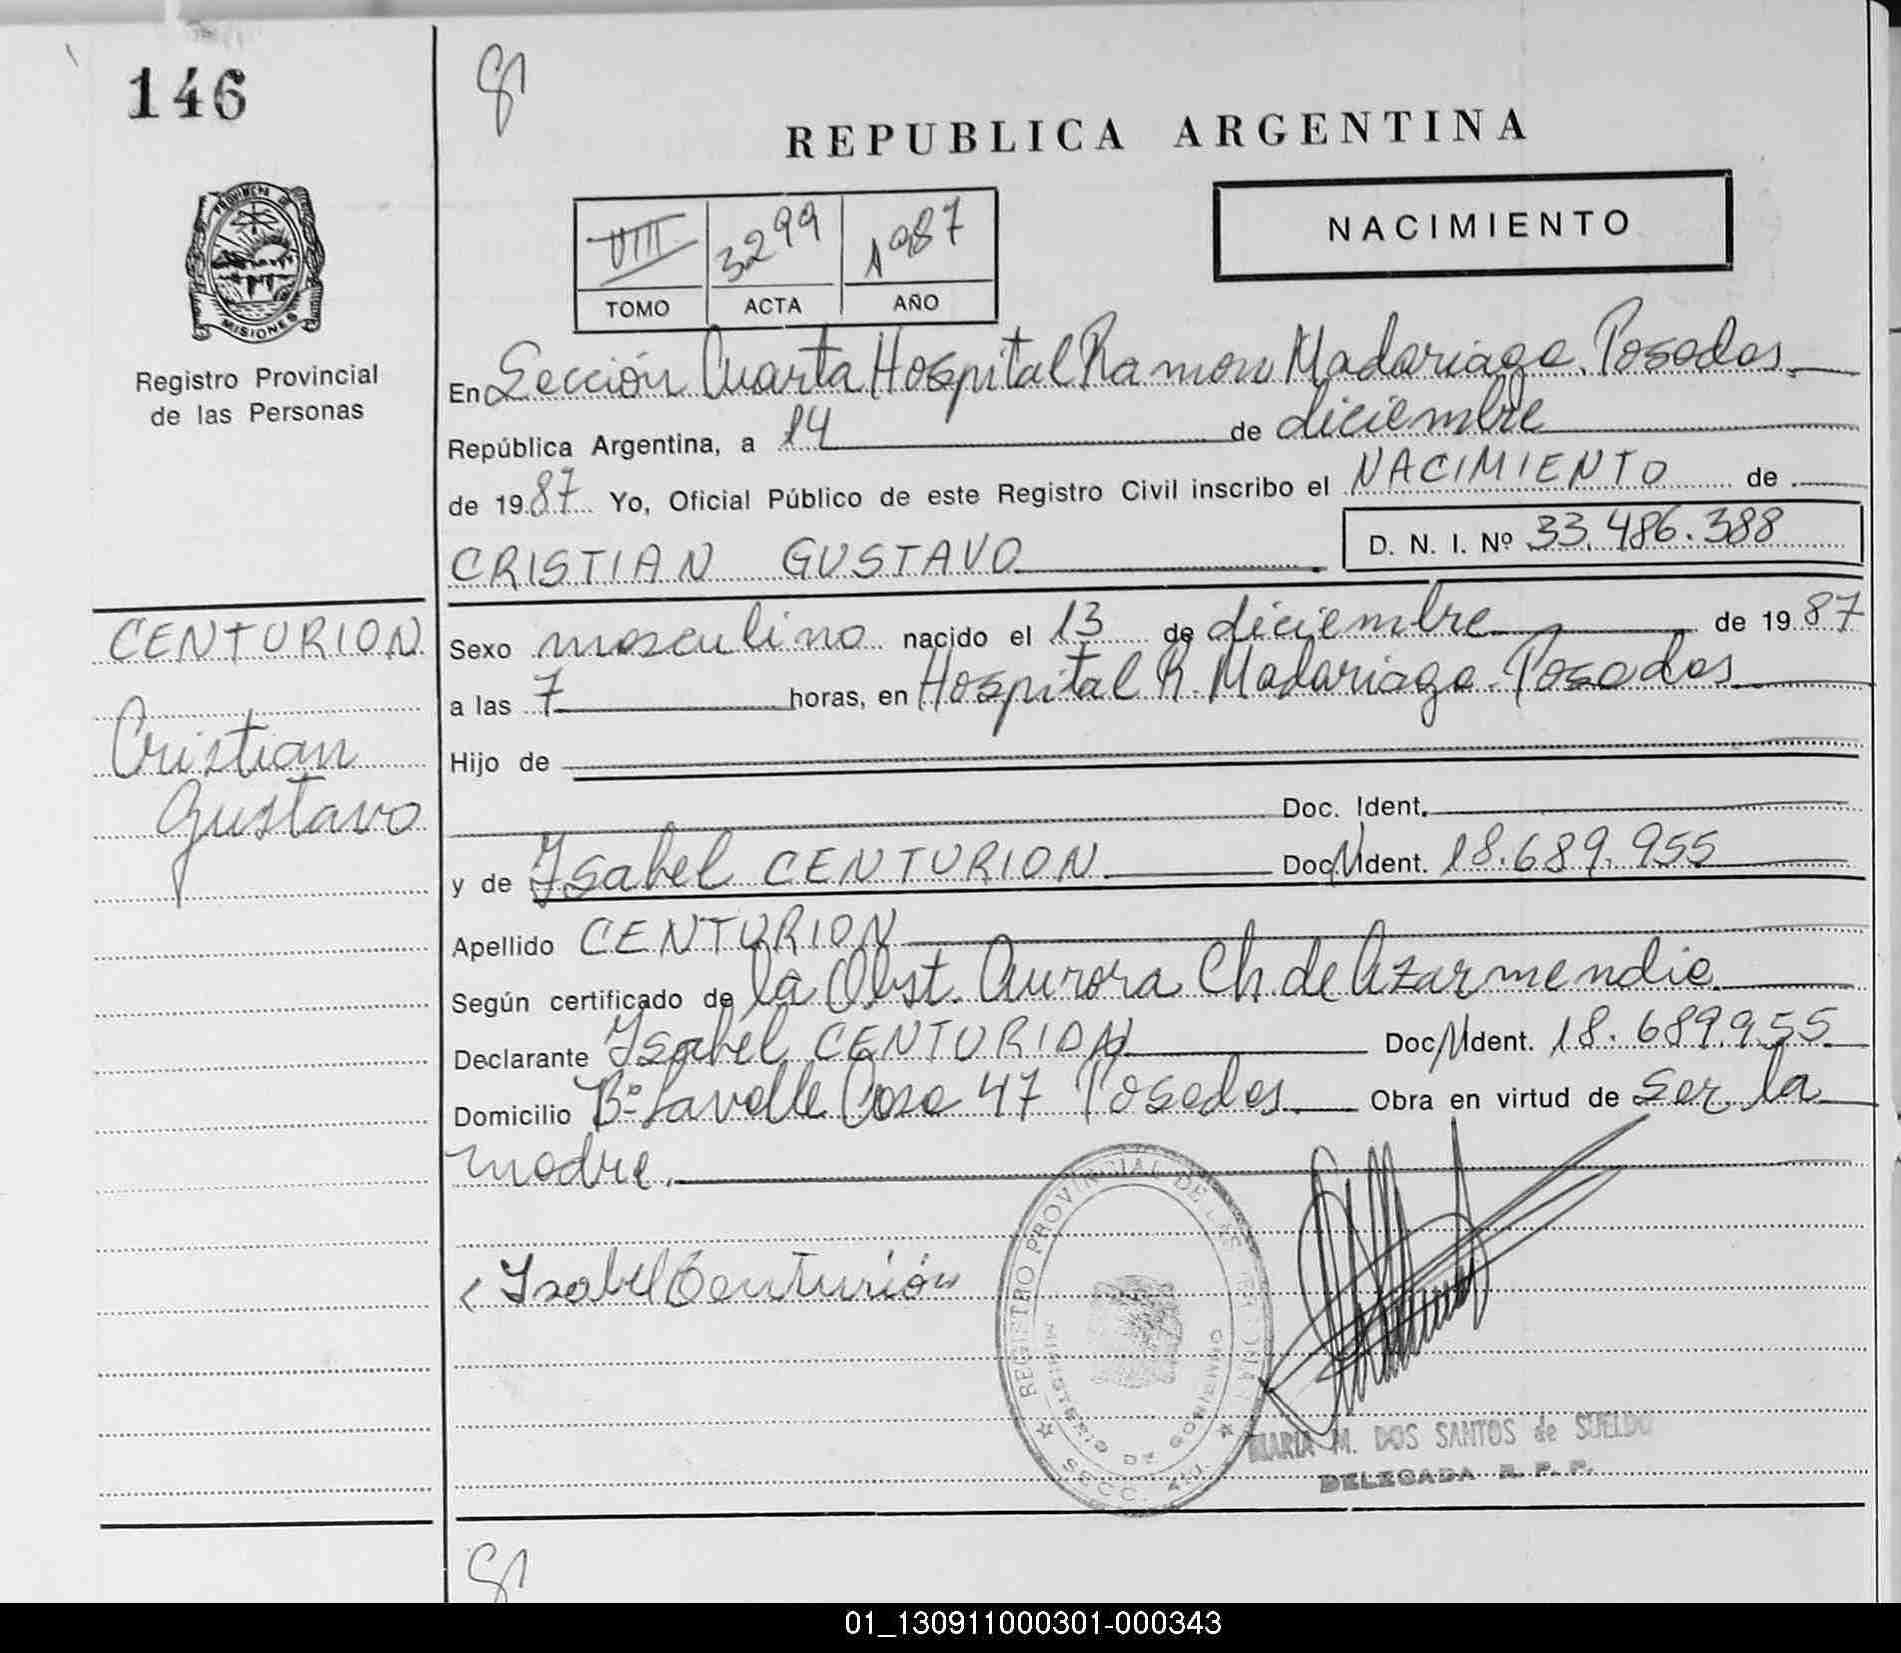 146
REPUBLICA ARGENTINA
NACIMIENTO
VIII 3299 1987
TOMO ACTA AÑO
PROVINCIA DE
MISIONES
Registro Provincial
de las Personas
En Sección Cuarta Hospital Ramon Madariaga. Posadas.
República Argentina, a 14 de diciembre
de 1987 Yo, Oficial Público de este Registro Civil inscribo el NACIMIENTO de
CRISTIAN GUSTAVO. D. N. I. Nº 33.486.388
CENTURION
Cristian
Gustavo
Sexo masculino nacido el 13 de diciembre de 1987
a las 7 horas, en Hospital R. Madariaga. Posadas
Hijo de
Doc. Ident.
y de Isabel CENTURION Doc. Ident. 18.689.955
Apellido CENTURION
Según certificado de la Obst. Aurora Ch. de Azarmendia.
Declarante Isabel CENTURION Doc. Ident. 18.689.955
Domicilio Bº Lavalle Casa 47 Posadas. Obra en virtud de ser la
madre.
Isabel Centurión
REGISTRO PROVINCIAL DE LAS
MINISTERIO DE GOBIERNO
SECC. 4
MARIA M. DOS SANTOS de SUELDO
DELEGADA R. P. P.
01_130911000301-000343